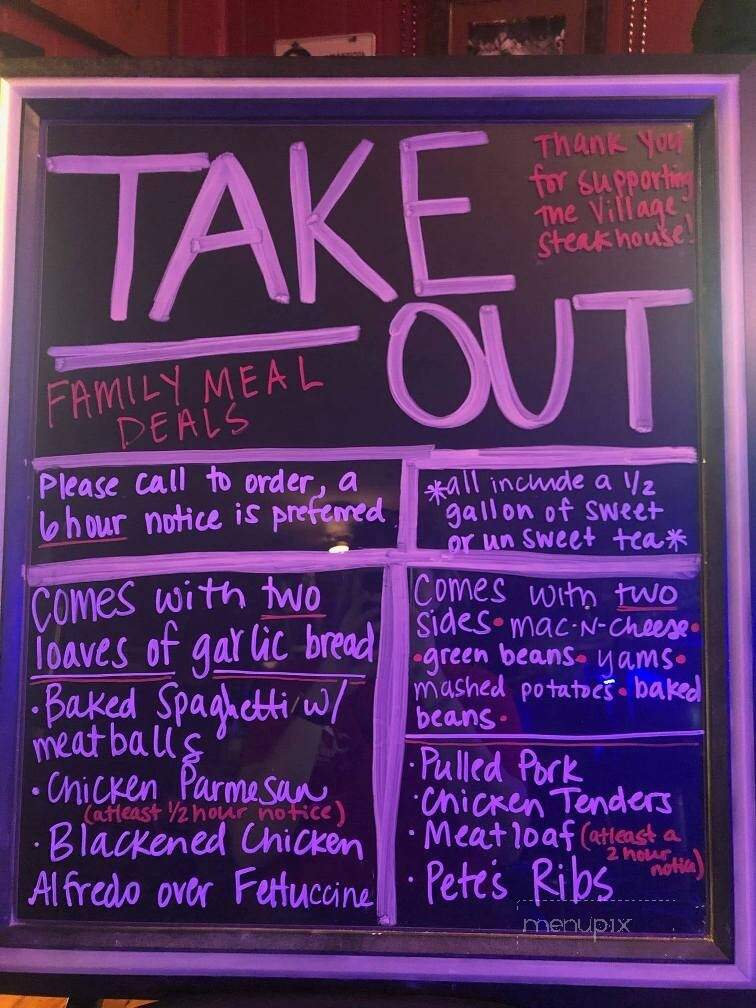 TAKE OUT
Thank you
for supporting
the Village
Steakhouse!
FAMILY MEAL
DEALS
Please call to order, a
6 hour notice is preferred
*all include a 1/2
gallon of sweet
or un sweet tea*
Comes with two
loaves of garlic bread
· Baked Spaghetti w/
meatballs
· Chicken Parmesan
(atleast 1/2 hour notice)
· Blackened Chicken
Alfredo over Fettuccine
Comes with two
sides • mac-N-cheese •
• green beans • yams •
mashed potatoes • baked
beans •
· Pulled Pork
· Chicken Tenders
· Meatloaf (atleast a
2 hour
notice)
· Pete's Ribs
menupix